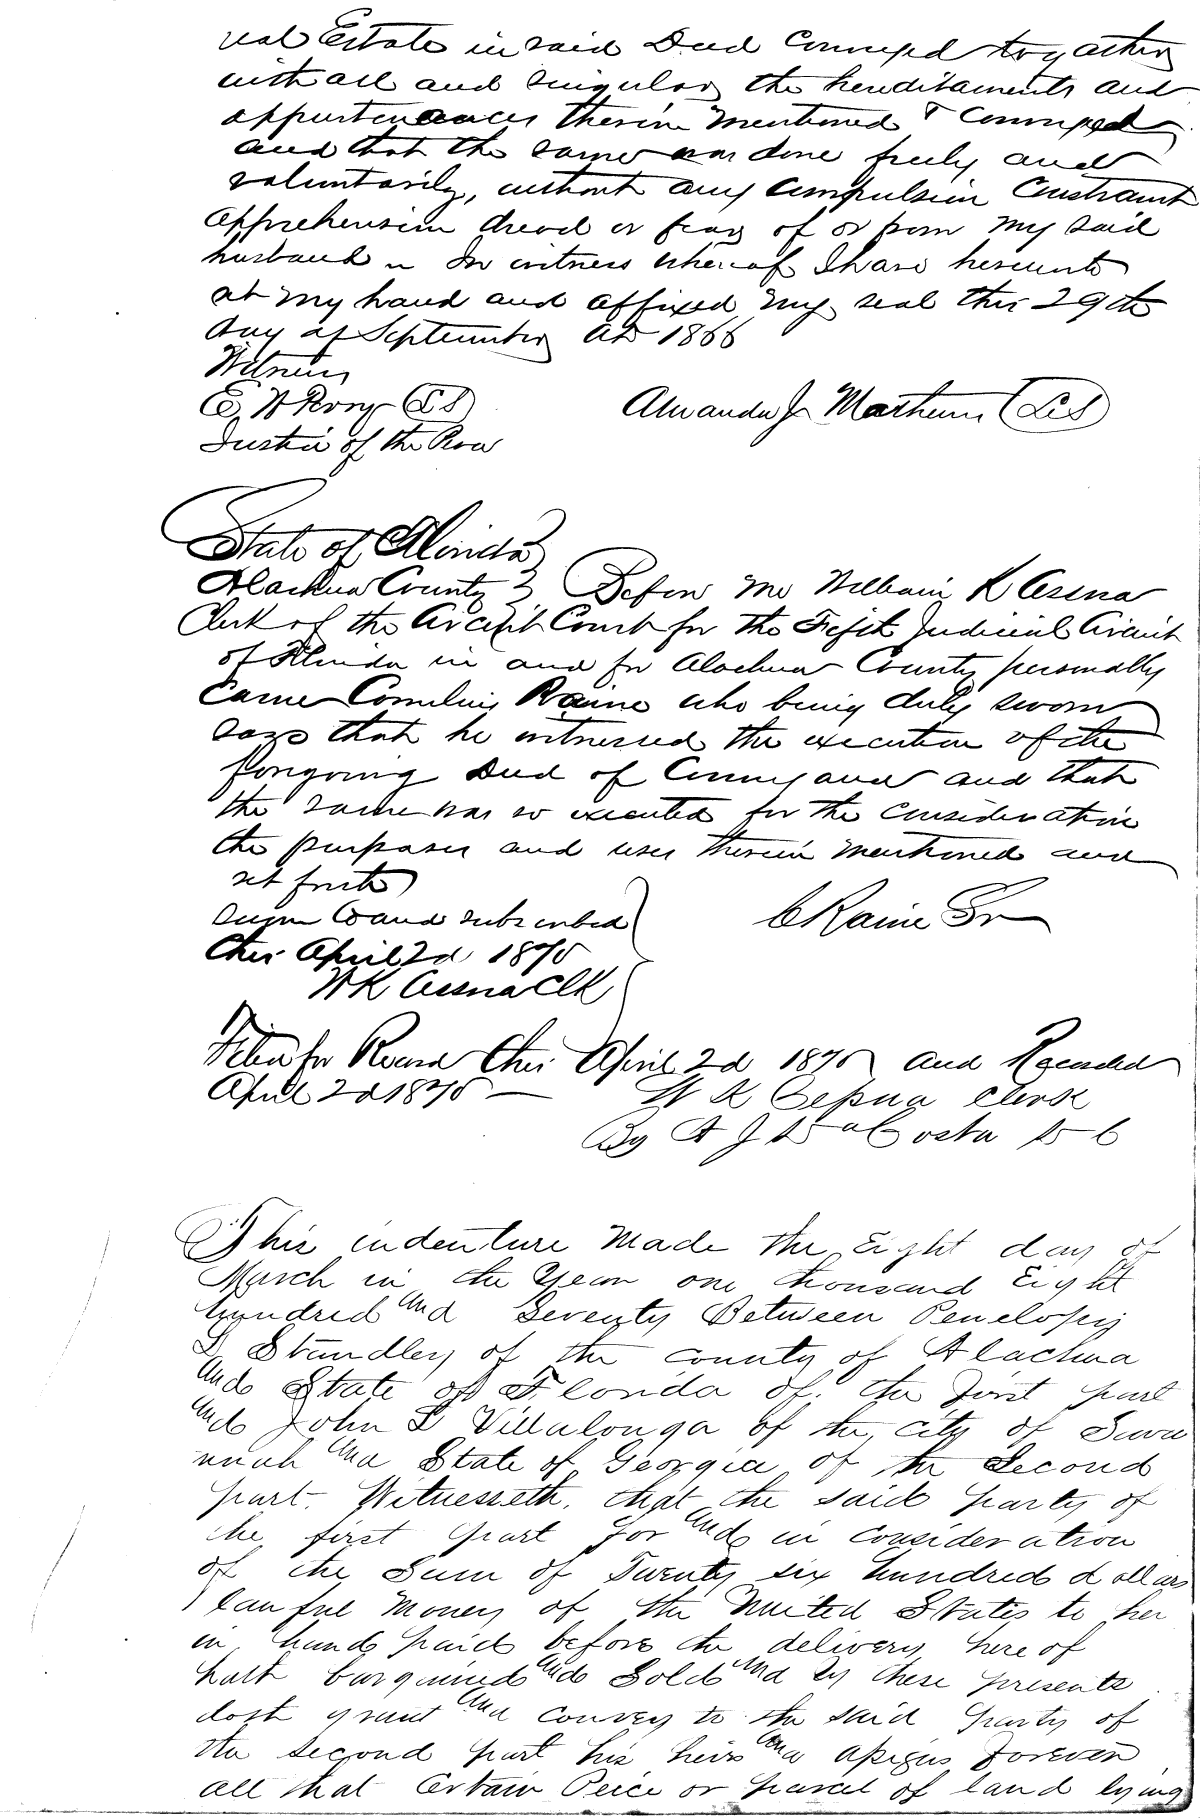 real Estate in said Deed Conveyed together
with all and singular the hereditaments and
appurtenances therein mentioned & Conveyed
and that the same was done freely and
voluntarily, without any Compulsion Constraint
apprehension dread or fear of or from my said
husband In witness whereof I have hereunto
set my hand and affixed my seal this 29th
day of September AD 1866
Witness
E. W Perry LS
Amanda J Matheus LS
Justice of the Peace
State of Florida
Alachua County } Before me William K Cessna
Clerk of the Circuit Court for the Fifth Judicial Circuit
of Florida in and for Alachua County personally
came Cornelius Raine who being duly sworn
says that he witnessed the execution of the
foregoing Deed of Conveyance and that
the same was so executed for the consideration
the purposes and uses therein mentioned and
set forth
Sworn to and subscribed
C Raine Sr
this April 2d 1870
W K Cessna Clk
Filed for Record this April 2d 1870 and Recorded
April 2d 1870 —
W K Cessna Clerk
By A J DaCosta D C
This indenture made the Eight day of
March in the Year one thousand Eight
hundred and Seventy Between Penelopy
S Standley of the county of Alachua
and State of Florida of the first part
and John L Villalonga of the city of Sava
nnah and State of Georgia of the Second
part. Witnesseth. that the said party of
the first part for and in consideration
of the Sum of Twenty six hundred dollars
lawful Money of the United States to her
in hand paid before the delivery here of
hath bargained and Sold and by these presents
doth grant and convey to the said party of
the second part his heirs and assigns forever
all that Certain Peice or parcel of land lying